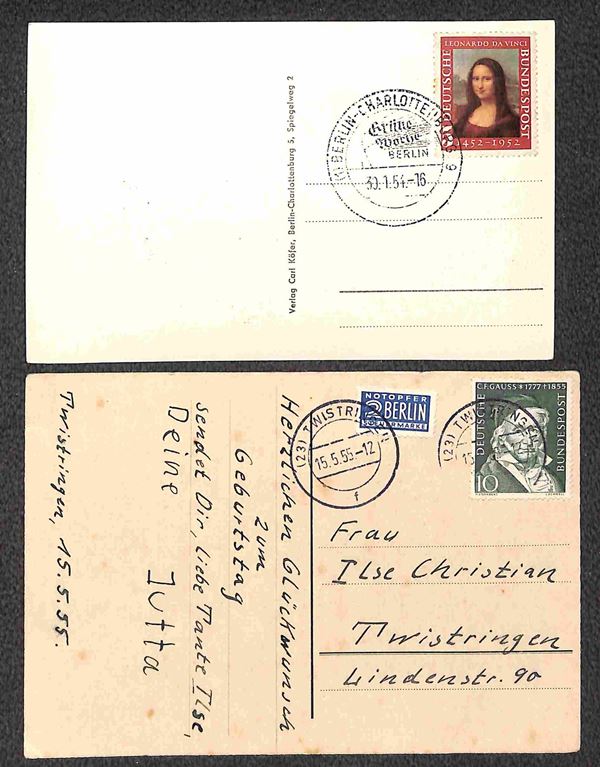 LEONARDO DA VINCI
DEUTSCHE
BUNDESPOST
1452-1952
BERLIN-CHARLOTTENB
Grüne
Woche
BERLIN
30.1.54.-16
9
Verlag Carl Köfer, Berlin-Charlottenburg 5, Spiegelweg 2
C.F.GAUSS * 1777+1855
DEUTSCHE
BUNDESPOST
10
NOTOPFER
2 BERLIN
STEUERMARKE
(23) TWISTRINGEN
15.5.55.-12
f
(23) TWISTRINGEN
Herzlichen Glückwunsch
zum
Geburtstag
sendet Dir, liebe Tante Ilse,
Deine
Jutta
Twistringen, 15.5.55.
Frau
Ilse Christian
Twistringen
Lindenstr. 90